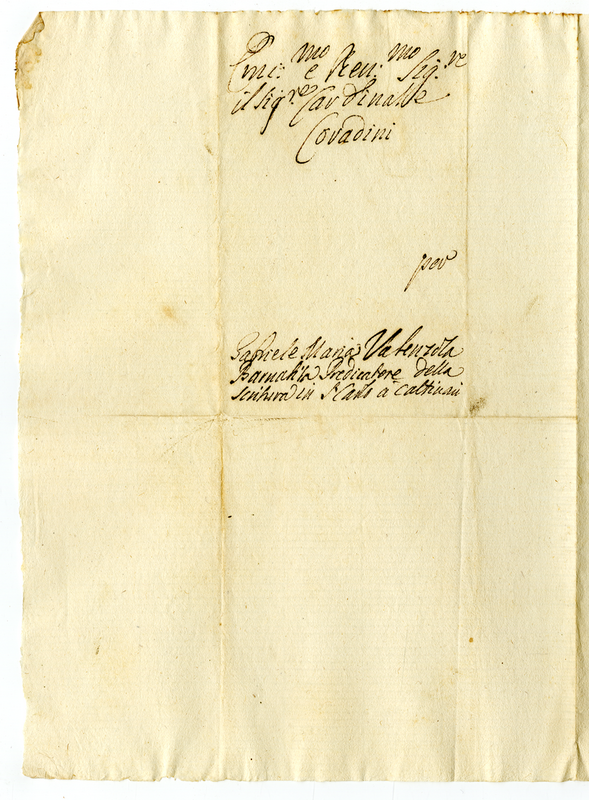 Emi: mo e Reu: mo Sig.re
il Sig.re Cardinale
Coradini
per
Gabriele Maria Valenzola
Barnabita Predicatore della
scritura in S Carlo a Catinari